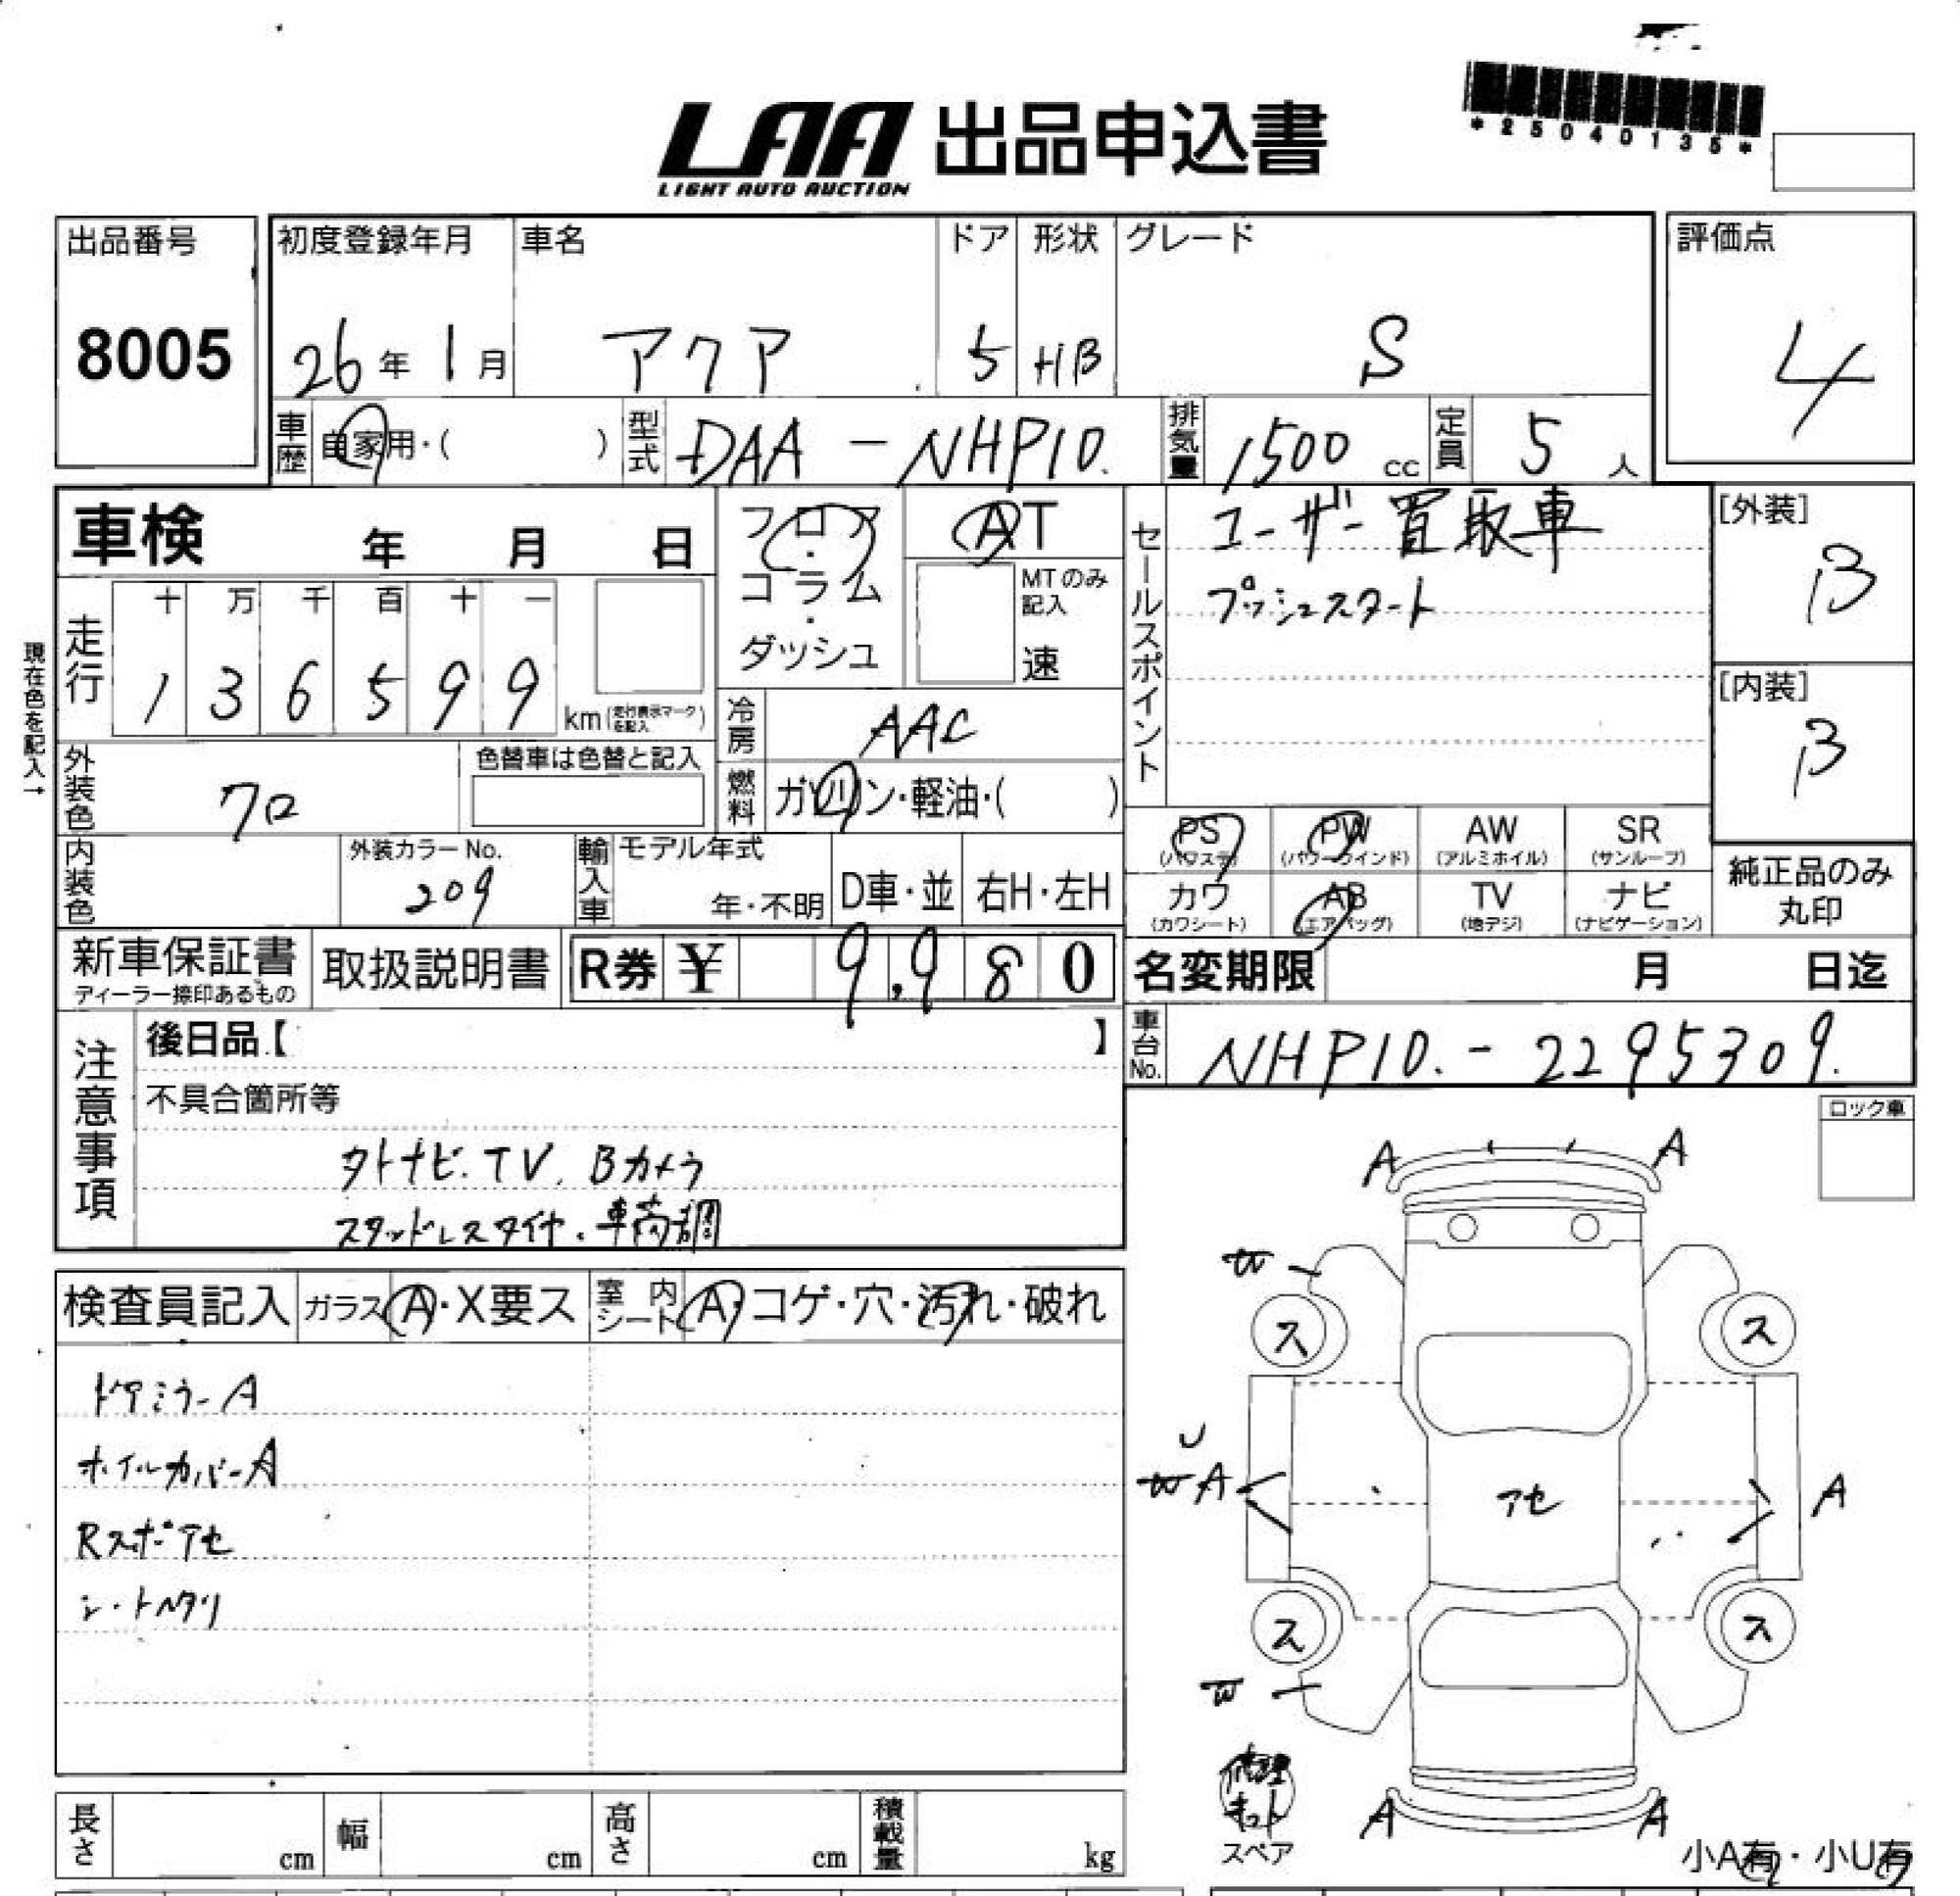 LAA 出品申込書
LIGHT AUTO AUCTION
*25040135*
出品番号
8005
初度登録年月
26年 1月
車名
アクア
ドア
5
形状
HB
グレード
S
評価点
4
車歴 自家用・( )
型式 DAA-NHP10
排気量 1500 cc
定員 5 人
車検 年 月 日
現在色を記入→
走行
十 万 千 百 十 一
1 3 6 5 9 9 km(走行表示マークを記入)
フロア・コラム・ダッシュ
AT
MTのみ記入
速
冷房 AAC
燃料 ガソリン・軽油・( )
セールスポイント
ユーザー買取車
プッシュスタート
[外装]
B
[内装]
B
外装色 クロ
色替車は色替と記入
内装色
外装カラー No.
209
輸入車
モデル年式
年・不明
D車・並
右H・左H
PS (パワステ)
PW (パワーウインド)
AW (アルミホイル)
SR (サンルーフ)
カワ (カワシート)
AB (エアバッグ)
TV (地デジ)
ナビ (ナビゲーション)
純正品のみ
丸印
新車保証書
ディーラー捺印あるもの
取扱説明書
R券 ¥ 9,980
名変期限 月 日迄
車台No. NHP10-2295309
注意事項
後日品【 】
不具合箇所等
外ナビ.TV.Bカメラ
スタッドレスタイヤ.車高調
ロック車
検査員記入
ガラス A・X要ス
室内シート A・コゲ・穴・汚れ・破れ
ドアミラーA
ホイルカバーA
Rスポアセ
シートヘタリ
A A
W
ス ス
U
W A
アセ
A
ス ス
W
修理キット
スペア
A A
小A有・小U有
長さ cm
幅 cm
高さ cm
積載量 kg